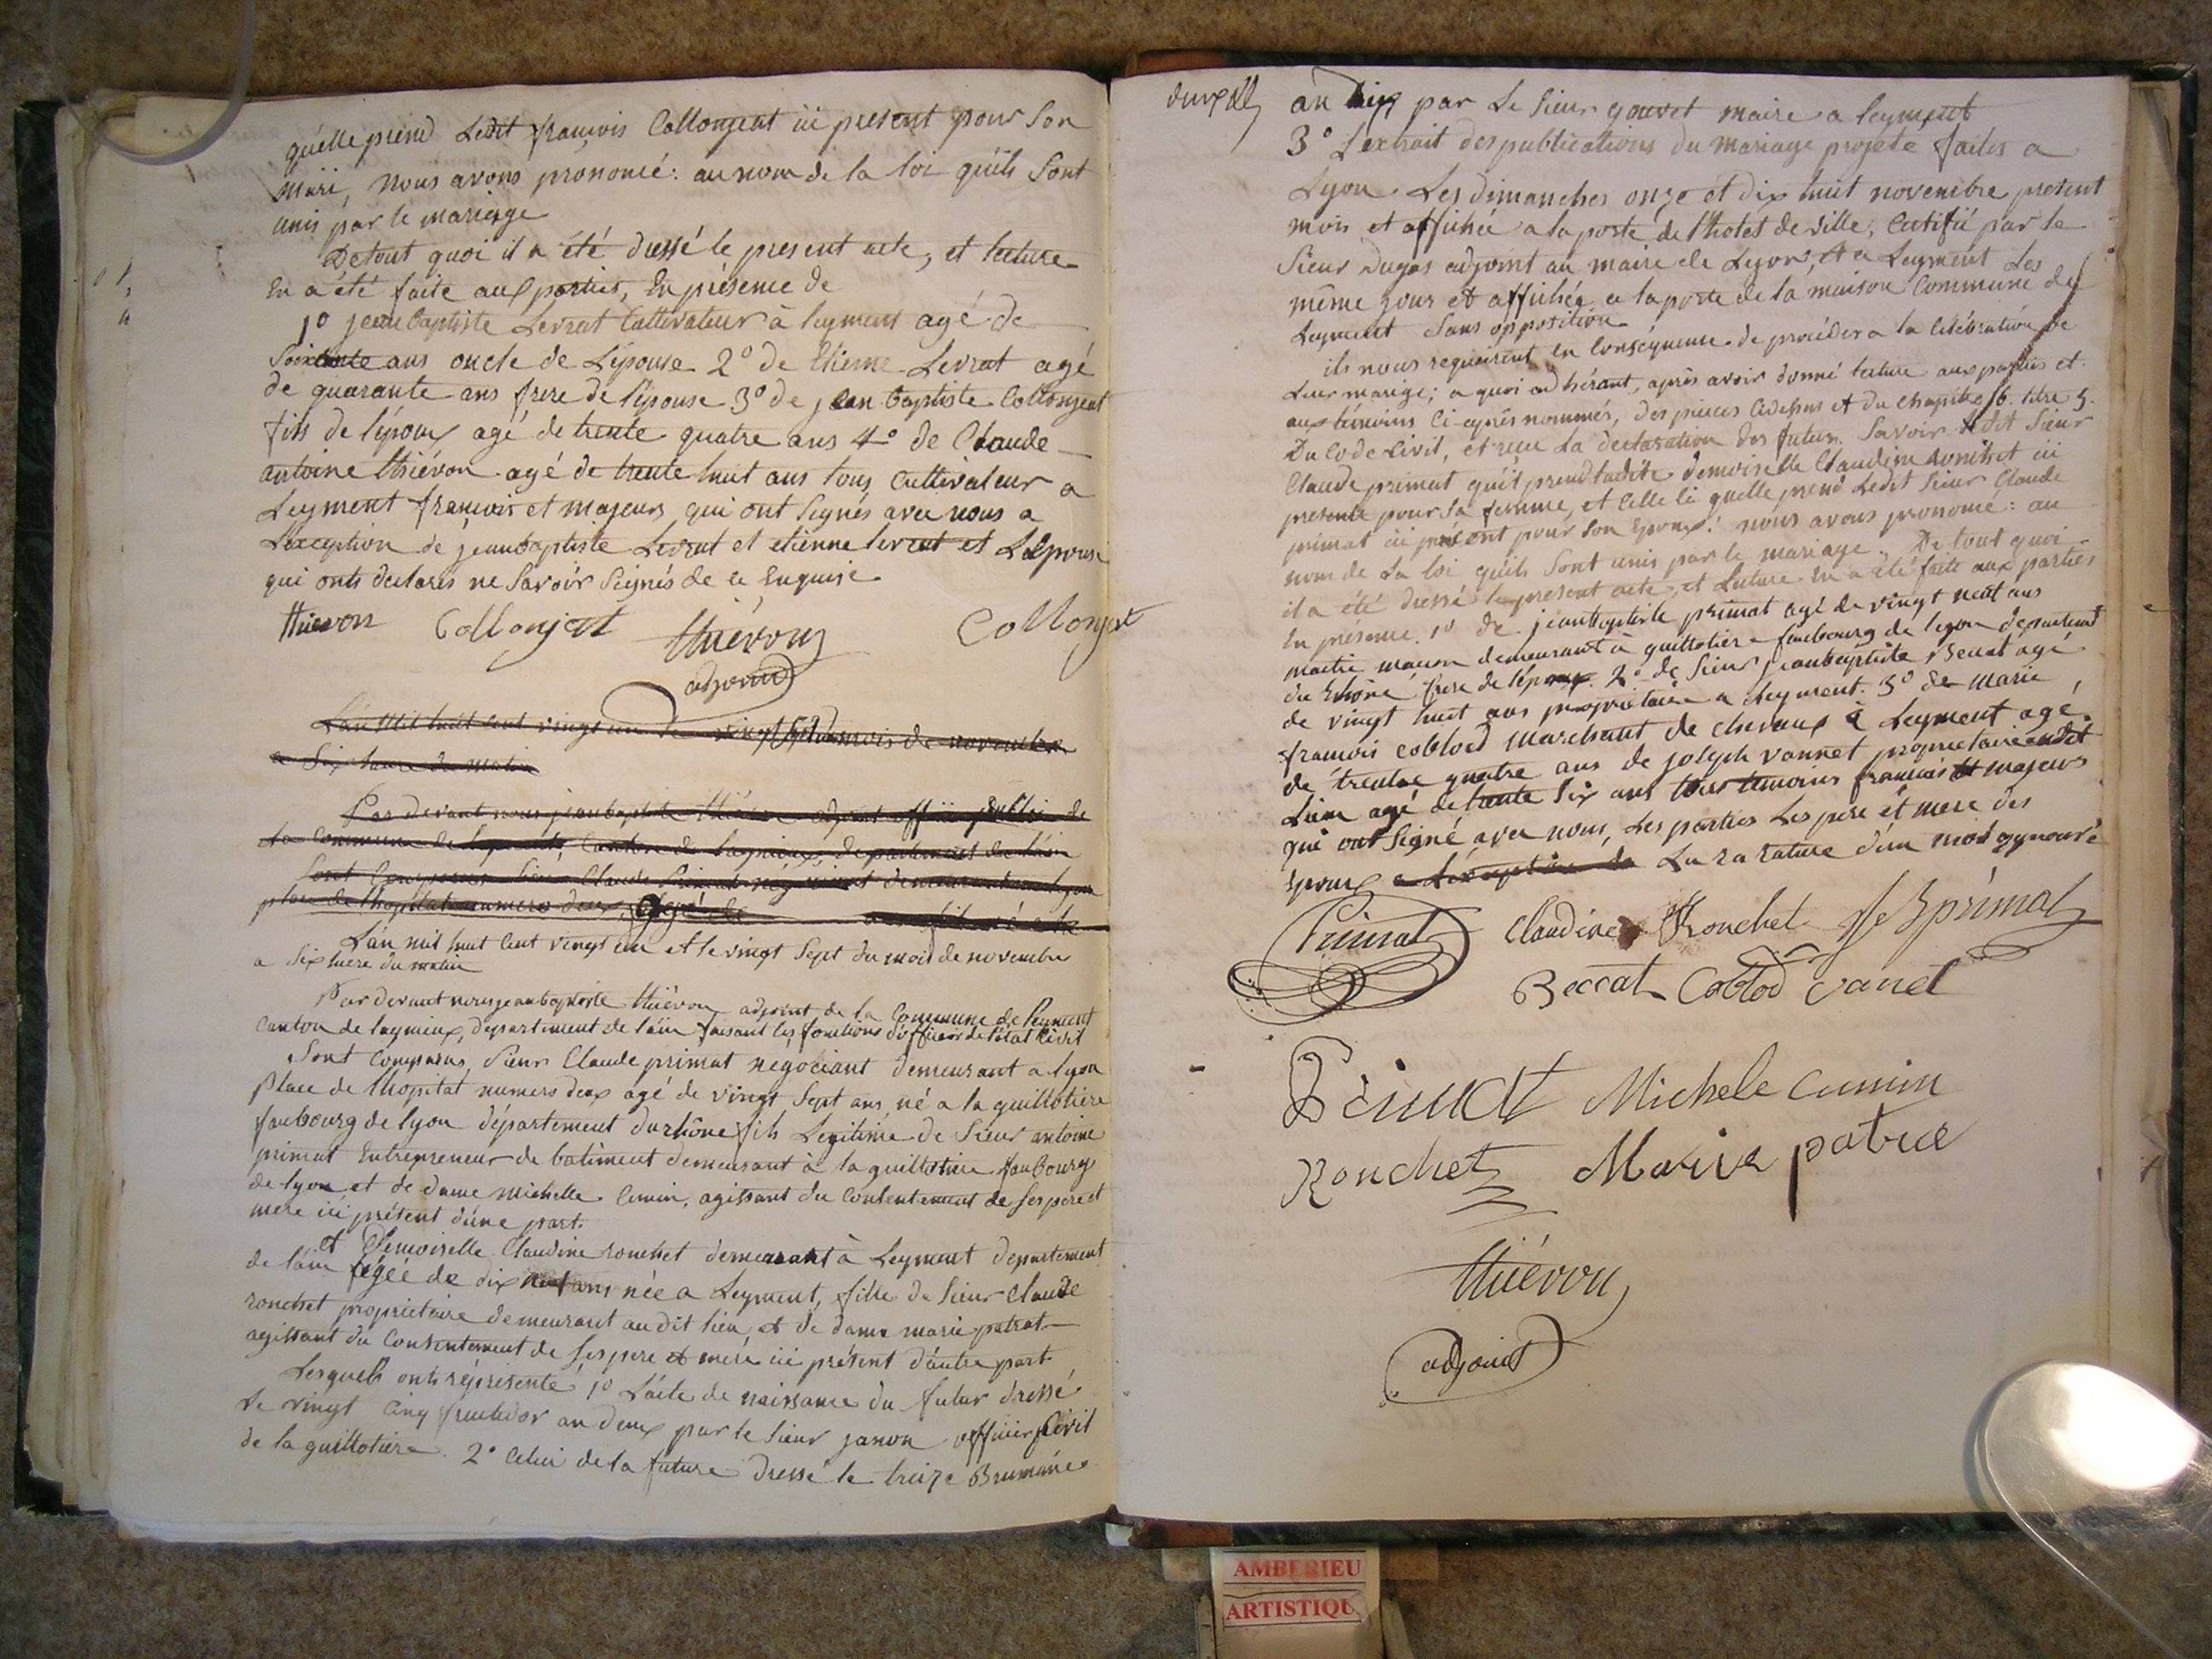 qu'elle prend Ledit françois Collongeat ici present pour Son
Mari, nous avons prononcé: au nom de la loi qu'ils Sont
unis par le mariage
De tout quoi il a été dressé le present acte, et lecture
En a été faite aux parties, En présence de
1º jean baptiste Levrat Cultivateur à leyment agé de
Soixante ans oncle de L'épouse 2º de Etienne Levrat agé
de quarante ans frere de l'épouse 3º de jean baptiste Collongeat
fils de l'époux agé de trente quatre ans 4º de Claude
antoine thiévon agé de trente huit ans tous Cultivateur a
Leyment françois et majeurs qui ont Signés avec nous a
L'exception de jeanbaptiste Levrat et etienne levrat et L'épouse
qui onts declarés ne Savoir Seignés de ce Enquise
thievon Collonjat thiévon Collonjat
adjoint
L'an mil huit cent vingt un le vingt Sept du mois de novembre
a Six heure du matin
Par devant nous jeanbaptiste thiévon adjoint officier public de
la Commune de leyment, Canton de lagnieux, departement de l'ain
Sont Comparus Sieur Claude Primat négociant demeurant a lyon
place de l'hopital numero deux, agé de
L'an mil huit Cent vingt un et le vingt Sept du mois de novembre
a Six heure du matin
Par devant nous jeanbaptiste thiévon adjoint de la Commune de Leyment
Canton de lagnieux, département de l'ain faisant les fonctions d'officier de l'état Civil
Sont Comparus, Sieur Claude primat negociant demeurant a lyon
place de l'hopital numero deux agé de vingt Sept ans, né a la guillotière
faubourg de lyon département du rhône fils Legitime de Sieur antoine
primat Entrepreneur de batiment demeurant à la guillotiere faubourg
de lyon et de dame Michelle Cimin, agissant du Consentement de Ses pere et
mere ici présent d'une part.
et Demoiselle Claudine ronchet demeurant à Leyment departement
de l'ain agée de dix neuf ans née a Leyment, fille de Sieur Claude
ronchet propriétaire demeurant au dit lieu, et de dame marie patrat
agissant du Consentement de Ses pere et mere ici présent d'autre part
Lesquels onts réprésenté 1º L'acte de naissance du futur dressé
le vingt Cinq fructidor an deux par le Sieur janon officier Civil
de la guillotiere. 2º Celui de la future dressé le treize Brumaire
an dix par Le Sieur gouvet maire a leyment
3º L'extrait des publications du mariage projeté faites a
Lyon Les dimanches onze et dix huit novembre present
mois et affichée a la porte de l'hotel de ville, Certifié par le
Sieur Dugas adjoint au maire de Lyon, et a Leyment Les
même jour et affichée a la porte de la maison Commune de
Leyment Sans opposition
ils nous requierent en Conséquence de procéder a la Célébration de
Leur mariage; a quoi adhérant, après avoir donné lecture aux parties et
aux témoins Ci-après nommés, des pieces Cidessus et du chapitre 6. titre 5.
Du Code Civil, et reçu la declaration des futurs. Savoir Ledit Sieur
Claude primat qu'il prend ladite demoiselle Claudine ronchet ici
presente pour Sa femme, et Celle Ci quelle prend Ledit Sieur Claude
primat ici présent pour Son Epoux: nous avons prononcé: au
nom de La loi qu'ils Sont unis par le mariage. De tout quoi
il a été dressé le present acte, et Lecture en a été faite aux parties
En présence 1º de jeanbaptiste primat agé de vingt neuf ans
maitre maçon demeurant à guillotiere faubourg de lyon departement
du Rhône frere de l'époux. 2º de Sieur jeanbaptiste Beccat agé
de vingt huit ans propriétaire a Leyment. 3º de Marie
françois Coblod Marchant de chevaux à Leyment agé
de trente quatre ans de joseph vannet propriétaire audit
Lieu agé de trente Six ans tous temoins français et majeurs
qui ont Signé avec nous, Les parties Les pere et mere des
Epoux a L'exception de La rature d'un mot approuvé
Primat Claudine Ronchet J Bprimat
Beccat Coblod vanet
Primat Michele Cimin
Ronchet Marie patrat
thiévon
adjoint
AMBERIEU
ARTISTIQU